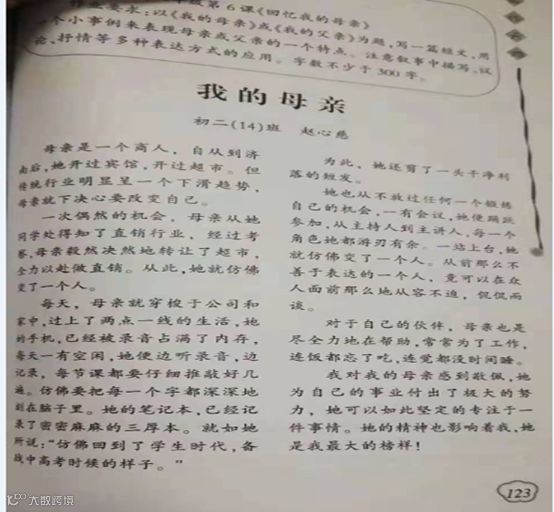 级第6课《回忆我的母亲》
作业要求：以《我的母亲》或《我的父亲》为题，写一篇短文，用
一个小事例来表现母亲或父亲的一个特点。注意叙事中描写、议
论、抒情等多种表达方式的应用。字数不少于300字。
我的母亲
初二(14)班 赵心慈
母亲是一个商人，自从到济
南后，她开过宾馆，开过超市。但
传统行业明显呈一个下滑趋势，
母亲就下决心要改变自己。
一次偶然的机会，母亲从她
同学处得知了直销行业，经过考
察，母亲毅然决然地转让了超市，
全力以赴做直销。从此，她就仿佛
变了一个人。
每天，母亲就穿梭于公司和
家中，过上了两点一线的生活，她
的手机，已经被录音占满了内存，
每天一有空闲，她便边听录音，边
记录，每节课都要仔细推敲好几
遍。仿佛要把每一个字都深深地
刻在脑子里。她的笔记本，已经记
录了密密麻麻的三厚本。就如她
所说：“仿佛回到了学生时代，备
战中高考时候的样子。”
为此，她还剪了一头干净利
落的短发。
她也从不放过任何一个锻炼
自己的机会，一有会议，她便踊跃
参加，从主持人到主讲人，每一个
角色她都游刃有余。一站上台，她
就仿佛变了一个人。从前那么不
善于表达的一个人，竟可以在众
人面前那么地从容不迫，侃侃而
谈。
对于自己的伙伴，母亲也是
尽全力地在帮助，常常为了工作，
连饭都忘了吃，连觉都没时间睡。
我对我的母亲感到敬佩，她
为自己的事业付出了极大的努
力，她可以如此坚定的专注于一
件事情。她的精神也影响着我，她
是我最大的榜样！
123
大数跨境